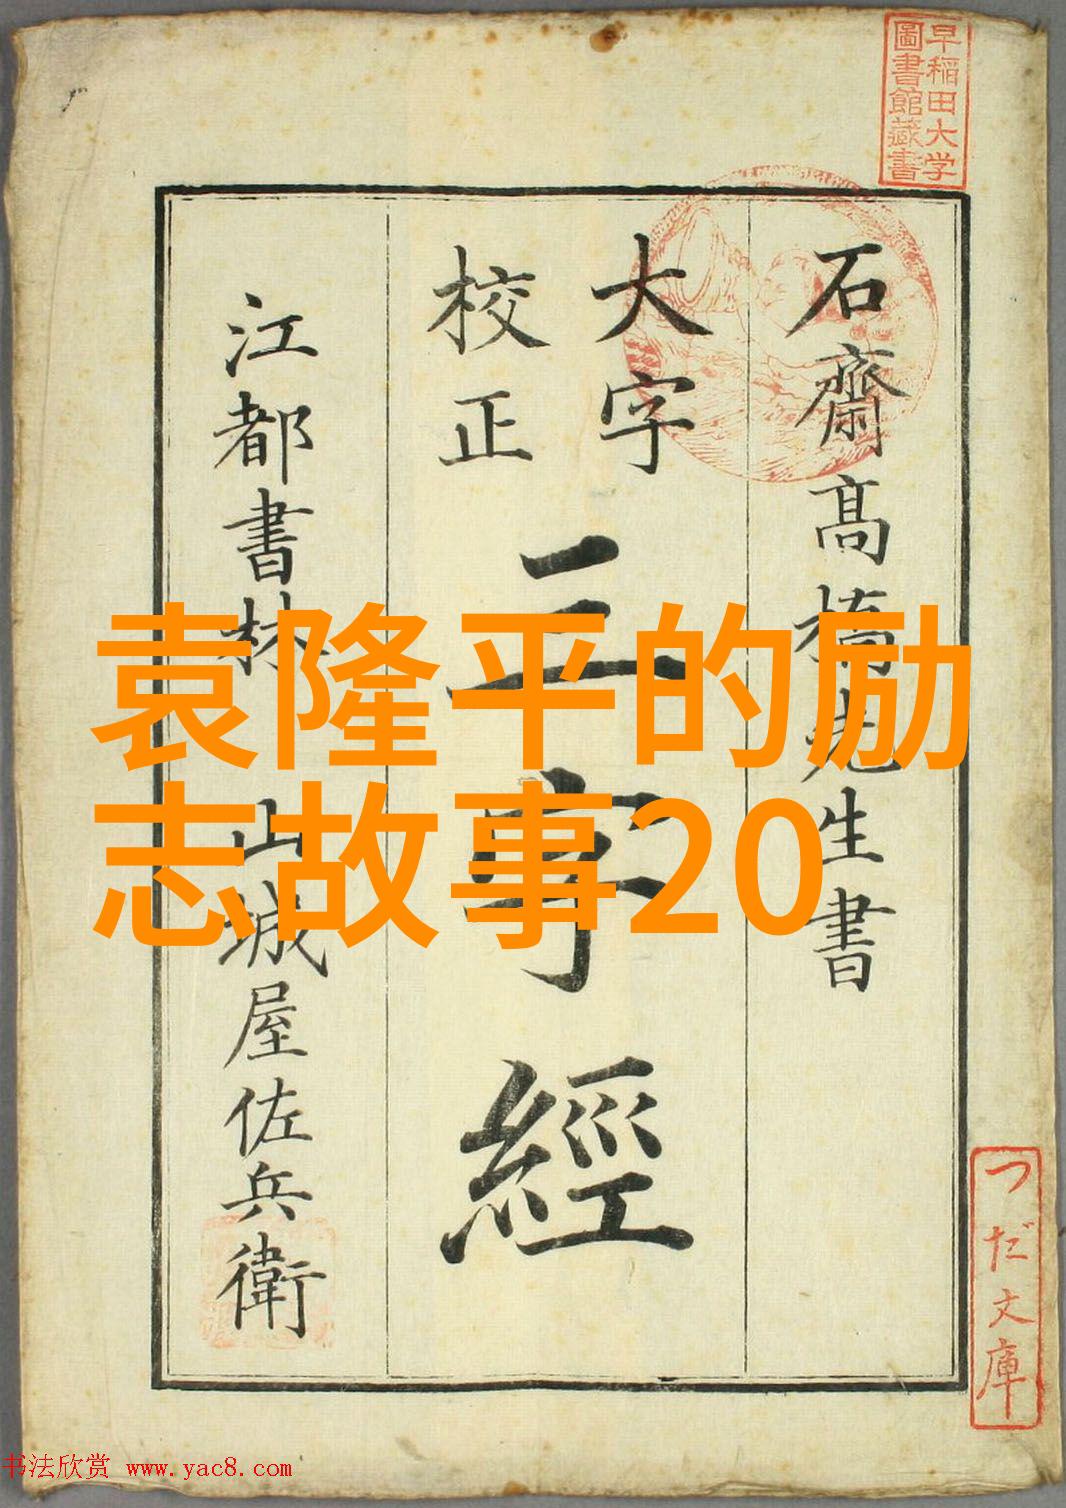 早稲田大学
圖書館藏書
石齋髙橋先生書
大字
校正
三字經
江都書林 山城屋佐兵衛
袁隆平的励
志故事20
つだ文庫
书法欣赏 www.yac8.com